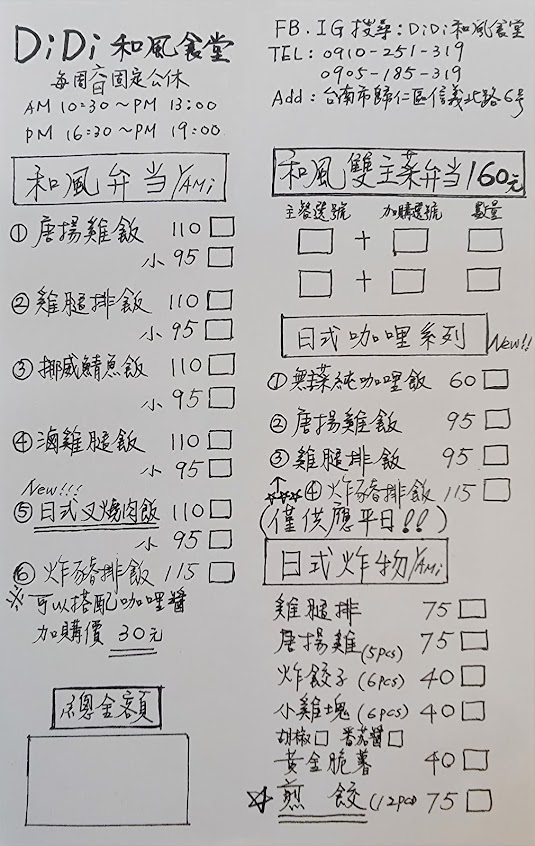 DiDi 和風食堂
每周六日固定公休
AM 10:30～PM 13:00
PM 16:30～PM 19:00
FB.IG搜尋:DiDi和風食堂
TEL: 0910-251-319
0905-185-319
Add: 台南市歸仁區信義北路6号
和風弁当/AMi
① 唐揚雞飯 110 □
小 95 □
② 雞腿排飯 110 □
小 95 □
③ 挪威鯖魚飯 110 □
小 95 □
④ 滷雞腿飯 110 □
小 95 □
New!!!
⑤ 日式叉燒肉飯 110 □
小 95 □
⑥ 炸豬排飯 115 □
※可以搭配咖哩醬
加購價 30元
總金額
和風雙主菜弁当160元
主餐選號 加購選號 數量
□ + □ □
□ + □ □
日式咖哩系列
New!!
① 無菜純咖哩飯 60 □
② 唐揚雞飯 95 □
③ 雞腿排飯 95 □
④ 炸豬排飯 115 □
(僅供應平日!!)
日式炸物/AMi
雞腿排 75 □
唐揚雞(5pcs) 75 □
炸餃子(6pcs) 40 □
小雞塊(6pcs) 40 □
胡椒□ 番茄醬□
黃金脆薯 40 □
☆煎餃(12pcs) 75 □